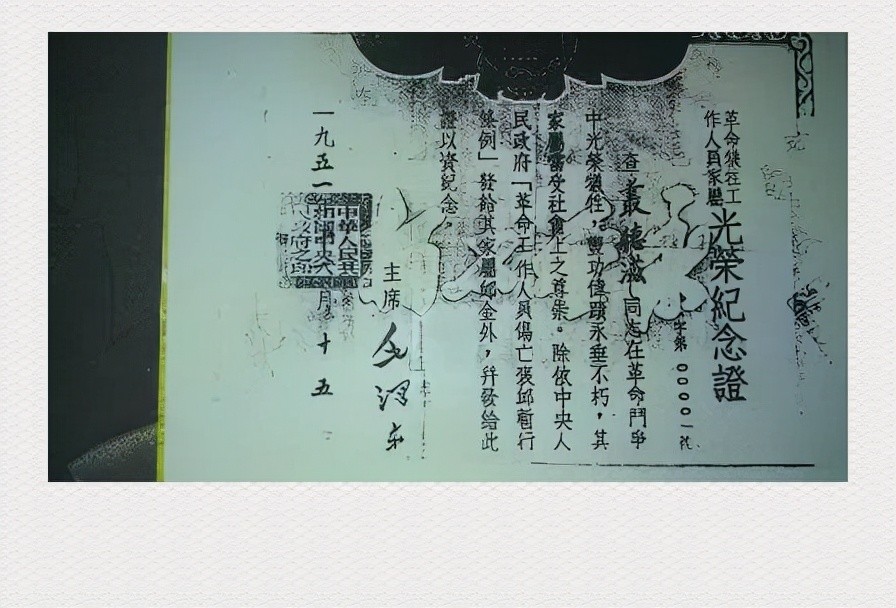 革命犧牲工
作人員家屬
光榮紀念證
字第 00001 號
查叢聽滋同志在革命鬥爭
中光榮犧牲，豐功偉蹟永垂不朽，其
家屬當受社會上之尊崇。除依中央人
民政府「革命工作人員傷亡褒卹暫行
條例」發給其家屬卹金外，幷發給此
證以資紀念。
主席 毛澤東
中華人民共
和國中央人
民政府之印
一九五一 月 十五